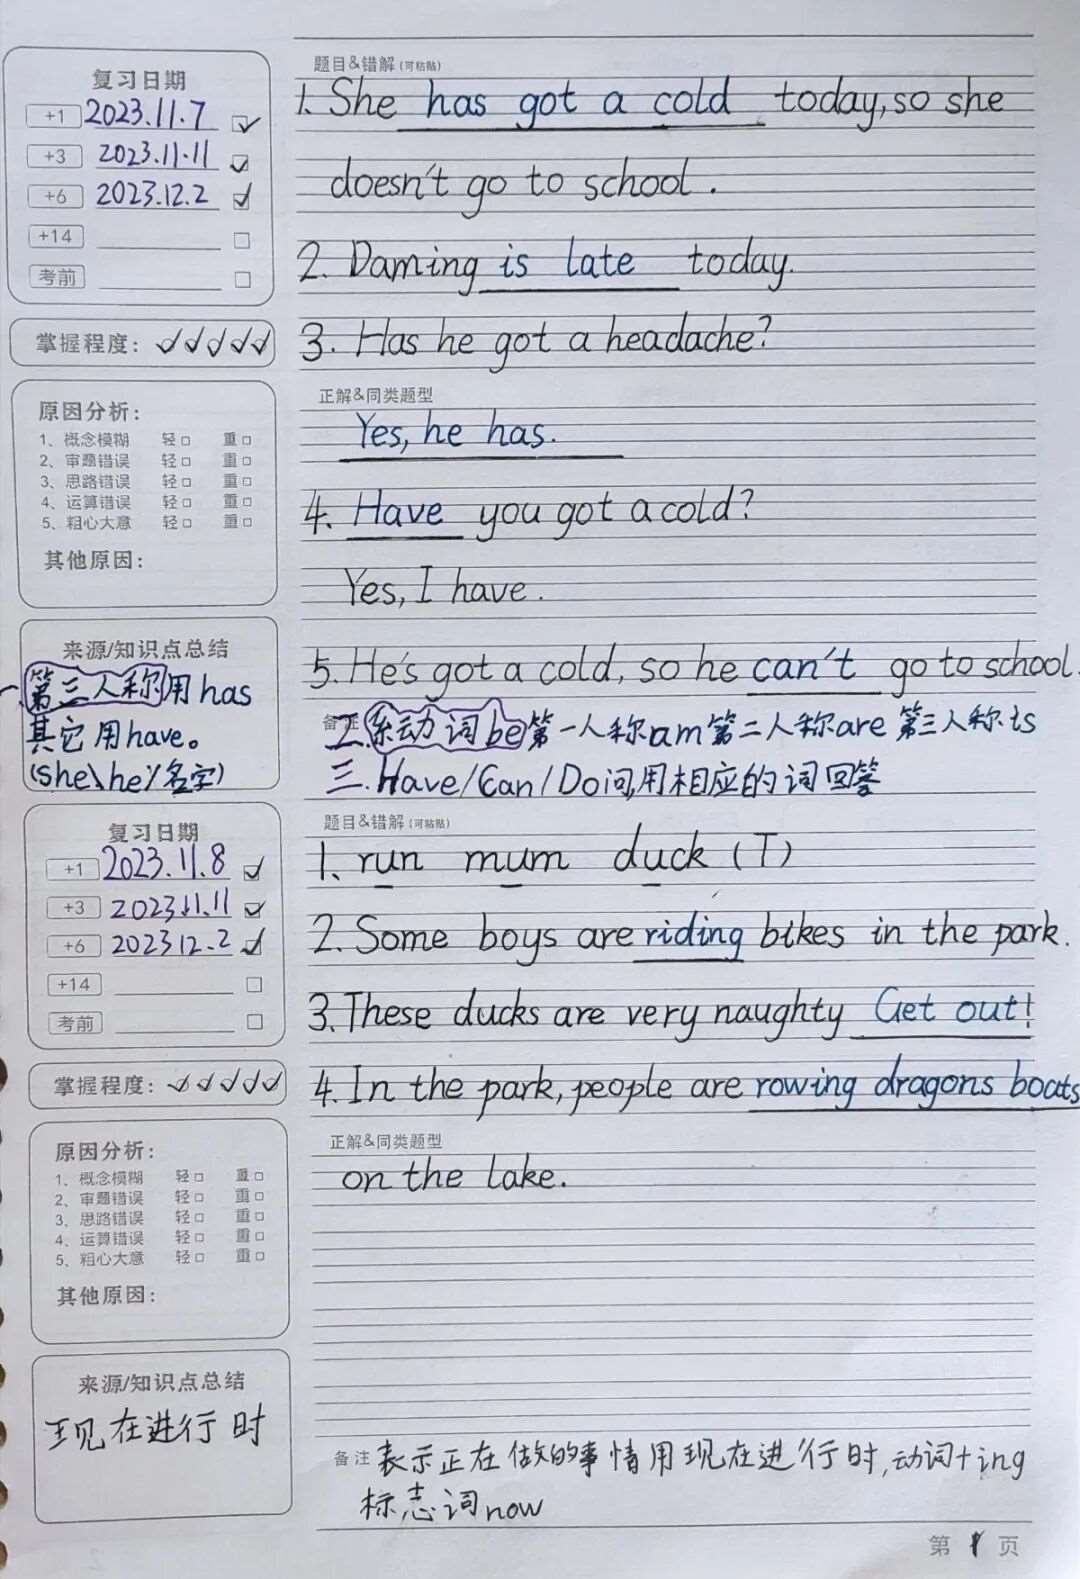 题目&错解(可粘贴)
复习日期
+1 2023.11.7
+3 2023.11.11
+6 2023.12.2
+14
考前
掌握程度：✓✓✓✓✓
原因分析：
1、概念模糊 轻□ 重□
2、审题错误 轻□ 重□
3、思路错误 轻□ 重□
4、运算错误 轻□ 重□
5、粗心大意 轻□ 重□
其他原因：
来源/知识点总结
第三人称用has
其它用have。
(she\he\名字)
1. She has got a cold today, so she
doesn't go to school.
2. Daming is late today.
3. Has he got a headache?
正解&同类题型
Yes, he has.
4. Have you got a cold?
Yes, I have.
5. He's got a cold, so he can't go to school.
备注 二.系动词be第一人称am第二人称are第三人称is
三.Have/Can/Do问,用相应的词回答
复习日期
+1 2023.11.8
+3 2023.11.11
+6 2023 12.2
+14
考前
掌握程度：✓✓✓✓✓
原因分析：
1、概念模糊 轻□ 重□
2、审题错误 轻□ 重□
3、思路错误 轻□ 重□
4、运算错误 轻□ 重□
5、粗心大意 轻□ 重□
其他原因：
来源/知识点总结
现在进行时
题目&错解(可粘贴)
1、run mum duck (T)
2. Some boys are riding bikes in the park.
3. These ducks are very naughty Get out!
4. In the park, people are rowing dragons boats
正解&同类题型
on the lake.
备注 表示正在做的事情用现在进行时,动词+ing
标志词now
第 1 页